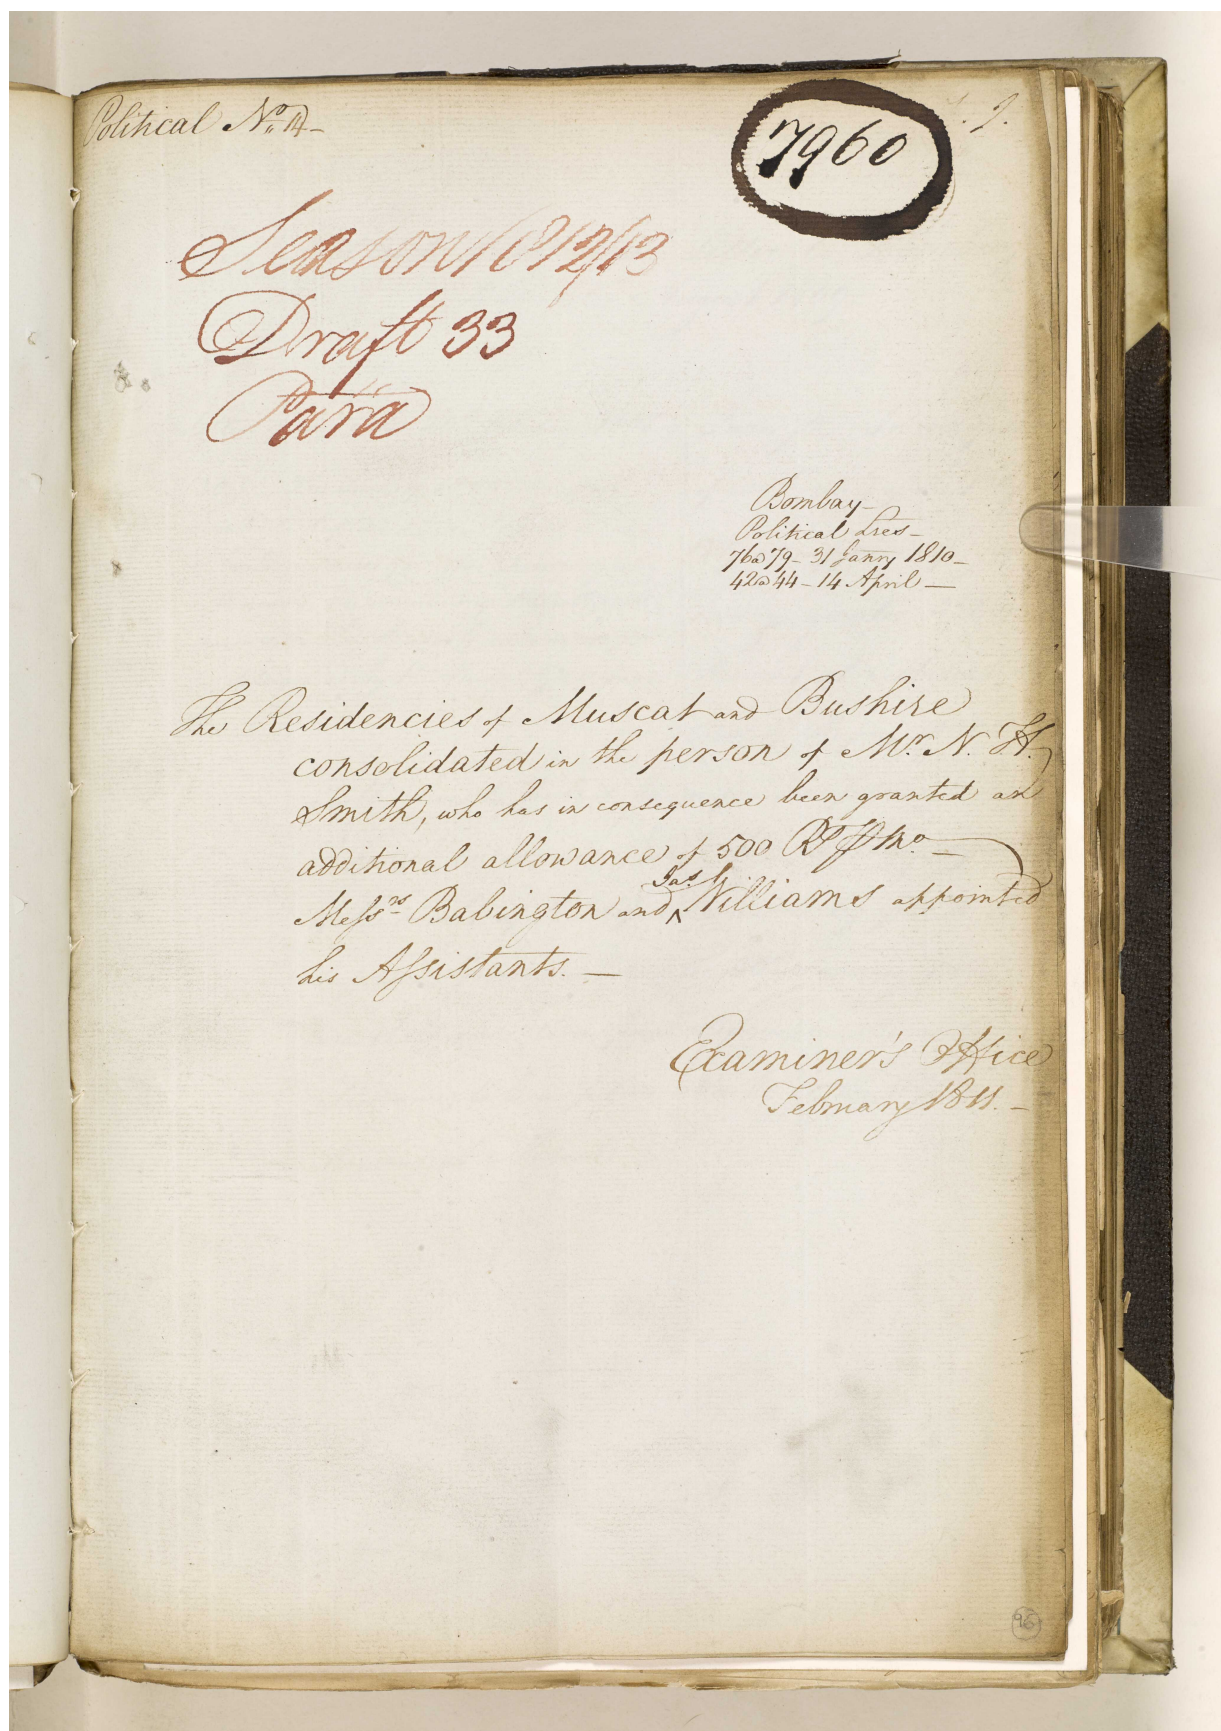 Political No. 14-
7960
Season 1812/13
Draft 33
Para
Bombay-
Political Lres-
76a79- 31 Janry 1810-
42a44- 14 April-
The Residencies of Muscat and Bushire
consolidated in the person of Mr. N. H.
Smith, who has in consequence been granted an
additional allowance of 500 Rs P Mo.-
Messrs Babington and Jas. L. Williams appointed
his Assistants.-
Examiner's Office
February 1811.-
96